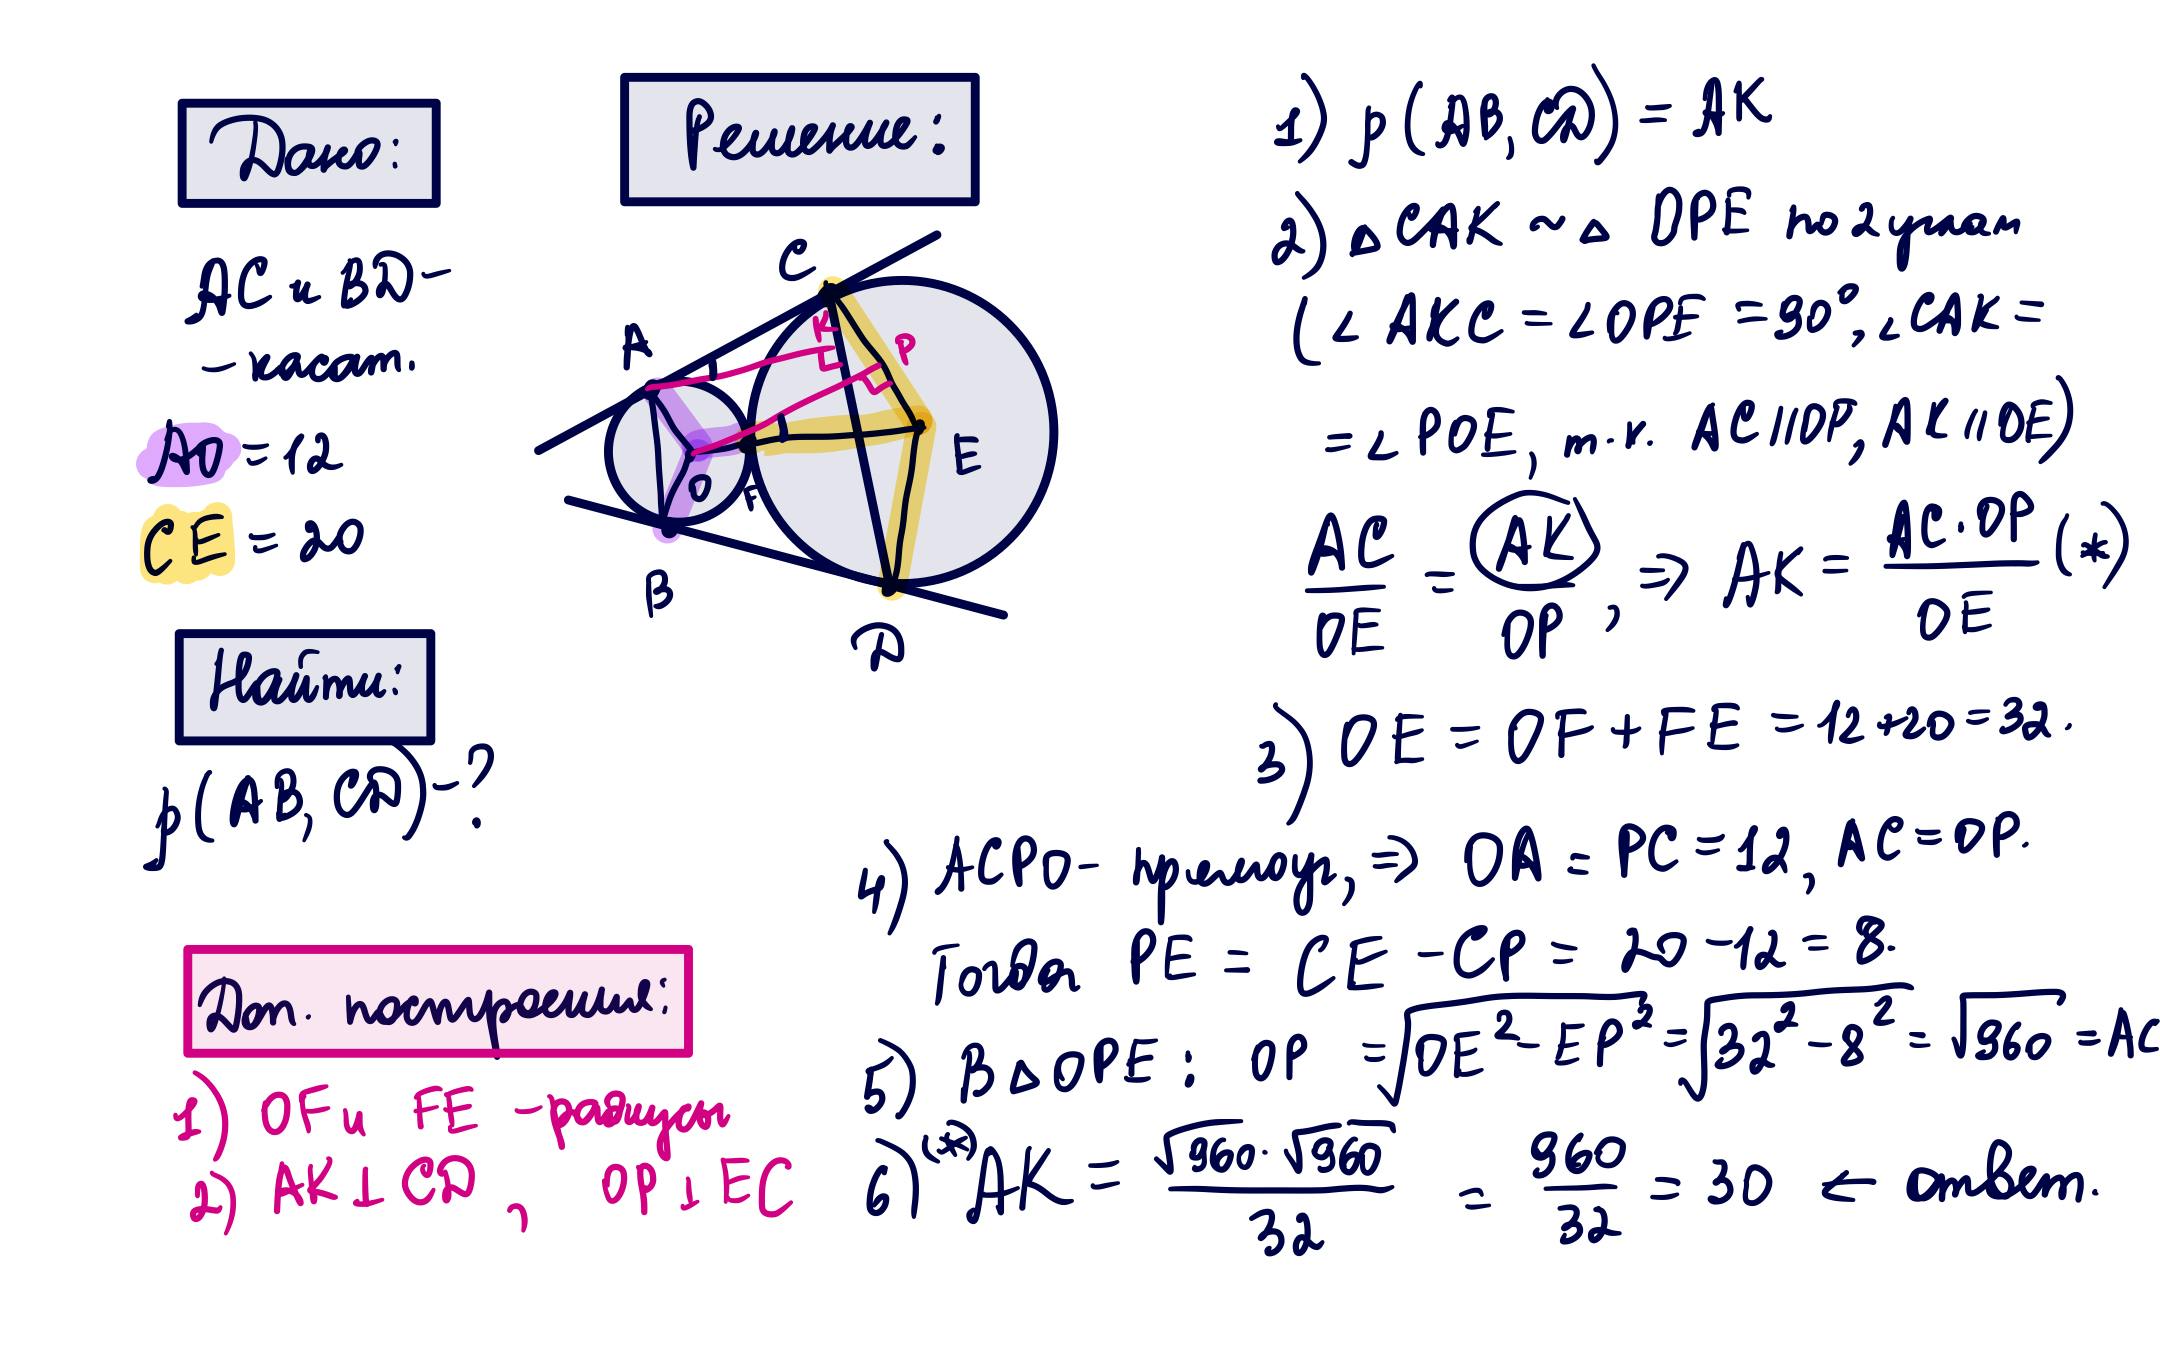 Дано:
AC и BD-
- касат.
AO = 12
CE = 20
Найти:
ρ(AB, CD) - ?
Доп. построения:
1) OF и FE - радиусы
2) AK ⊥ CD, OP ⊥ EC
Решение:
C
K
P
A
E
O
F
B
D
1) ρ(AB, CD) = AK
2) △CAK ~ △ OPE по 2 углам
(∠ AKC = ∠OPE = 90°, ∠CAK =
= ∠POE, т.к. AC || OP, AK || OE)
AC/OE = AK/OP, ⇒ AK = AC·OP/OE (*)
3) OE = OF + FE = 12 + 20 = 32.
4) ACPO - прямоуг, ⇒ OA = PC = 12, AC = OP.
Тогда PE = CE - CP = 20 - 12 = 8.
5) В △OPE: OP = √(OE² - EP²) = √(32² - 8²) = √960 = AC
6) (*) AK = √960·√960/32 = 960/32 = 30 ← ответ.